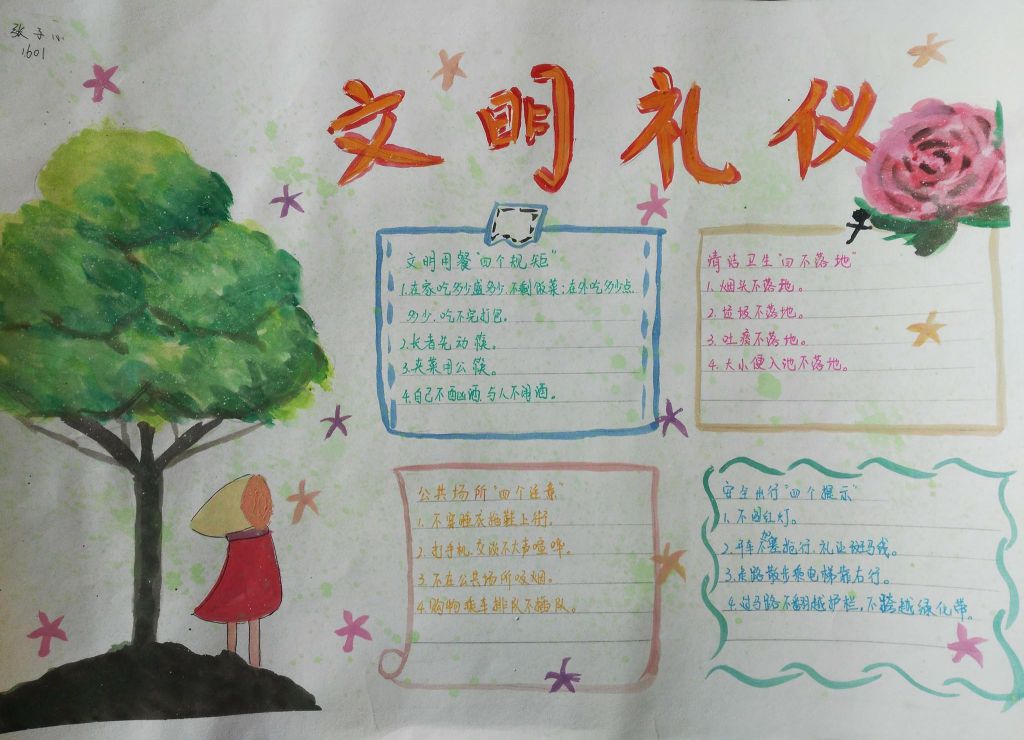 张子
1601
文明礼仪
文明用餐"四个规矩"
1.在家吃多少盛多少.不剩饭菜;在外吃多少点
多少.吃不完打包。
2.长者先动筷。
3.夹菜用公筷。
4.自己不酗酒.与人不闹酒。
清洁卫生"四不落地"
1.烟头不落地。
2.垃圾不落地。
3.吐痰不落地。
4.大小便入池不落地。
公共场所"四个注意"
1.不穿睡衣拖鞋上街.
2.打手机.交谈不大声喧哗。
3.不在公共场所吸烟。
4.购物乘车排队不插队。
安全出行"四个提示"
1.不闯红灯。
2.开车不抢行.礼让斑马线。
3.走路散步乘电梯靠右行。
4.过马路不翻越护栏,不跨越绿化带。